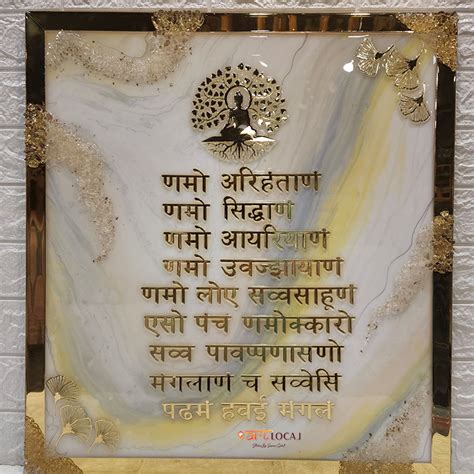 णमो अरिहंताणं
णमो सिद्धाणं
णमो आयरियाणं
णमो उवज्झायाणं
णमो लोए सव्वसाहूणं
एसो पंच णमोक्कारो
सव्व पावप्पणासणो
मंगलाणं च सव्वेसिं
पढमं हवई मंगलं
LOCAL